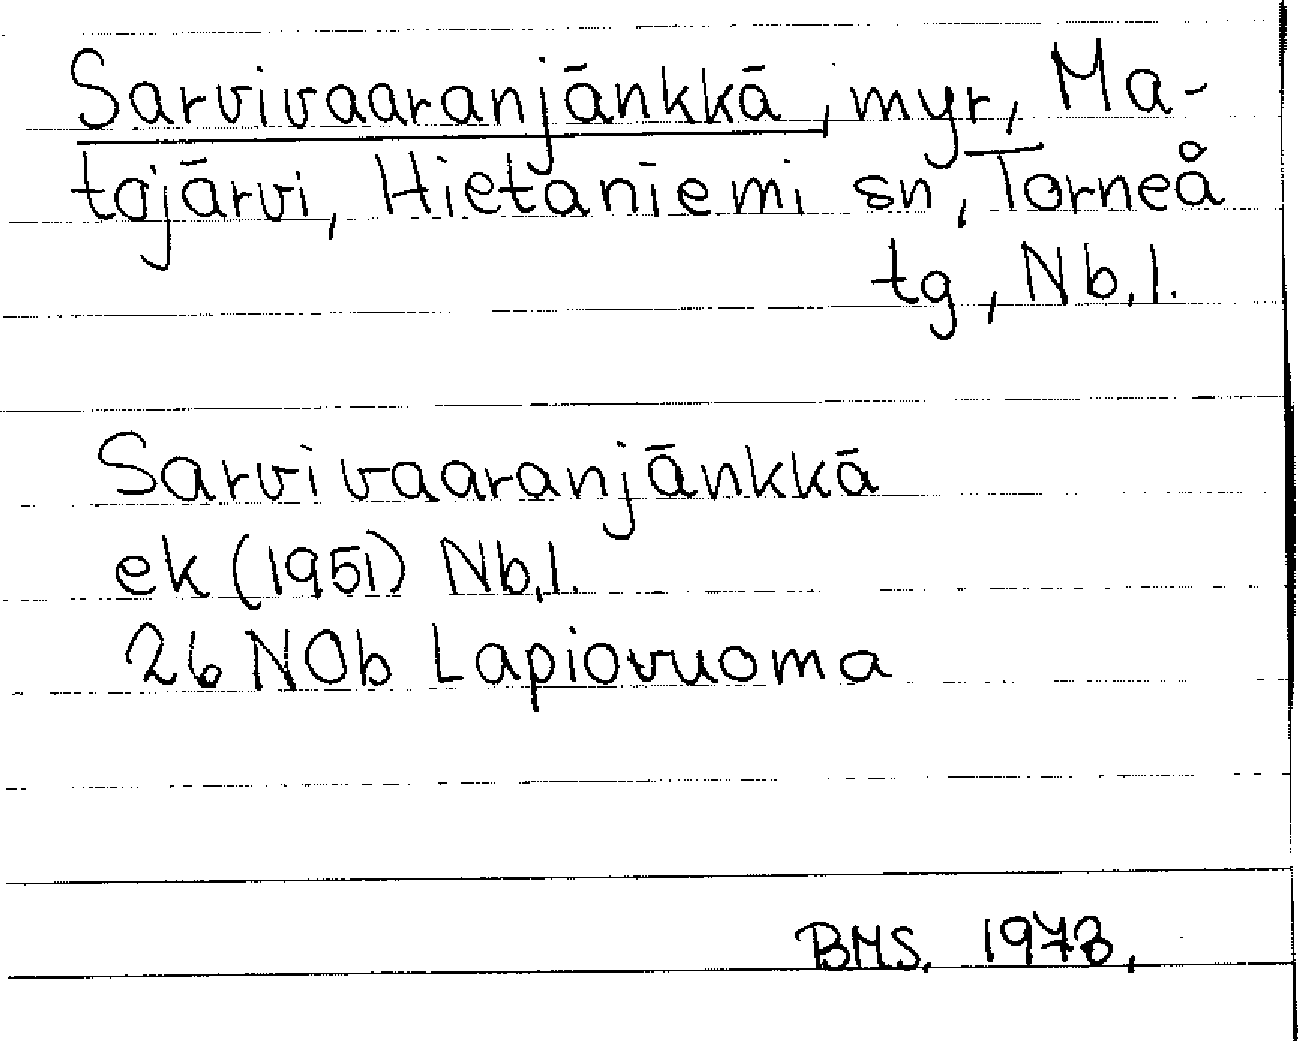 Sarvivaaranjänkkä, myr, Ma-
tajärvi, Hietaniemi sn, Torneå
tg, Nb.l.
Sarvivaaranjänkkä
ek (1951) Nb.l.
26 NOb Lapiovuoma
BMS. 1973.